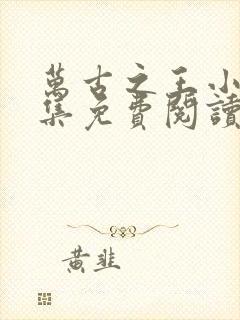 萬古之王小
集免費閱讀
黃韭